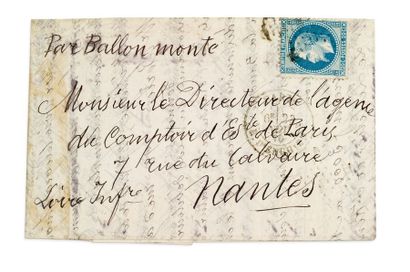 Par Ballon monté
Monsieur le Directeur de l'agence
du Comptoir d'Es^te de Paris
7 rue du Calvaire
Loire Infre
Nantes